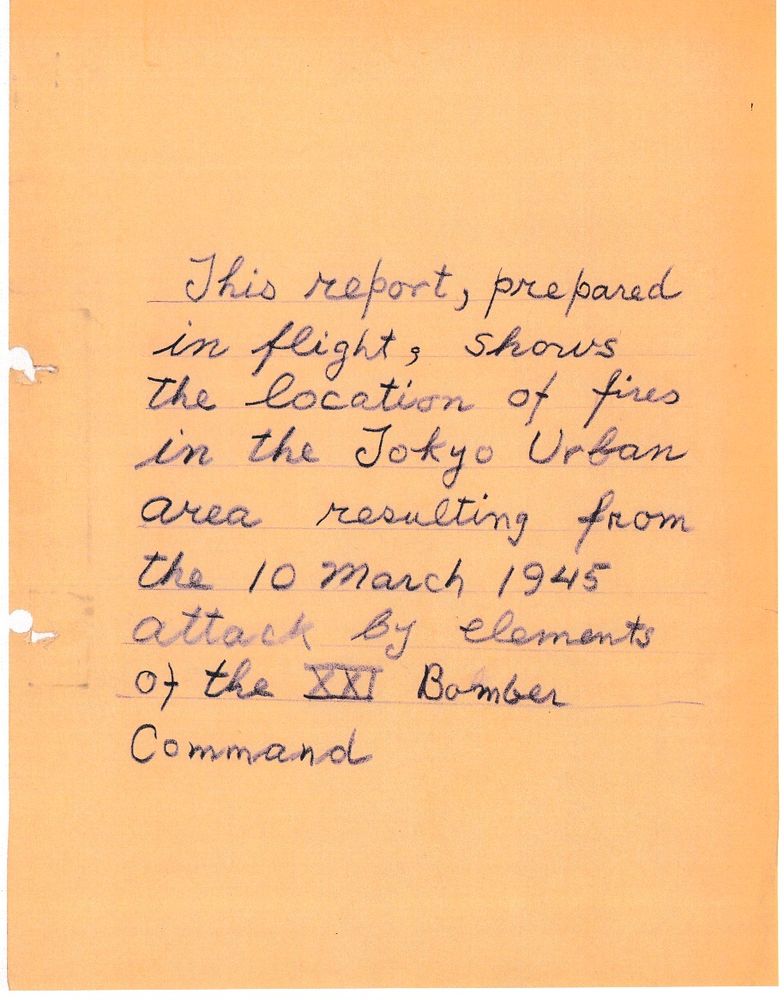 This report, prepared
in flight, shows
the location of fires
in the Tokyo Urban
area resulting from
the 10 March 1945
attack by elements
of the XXI Bomber
Command